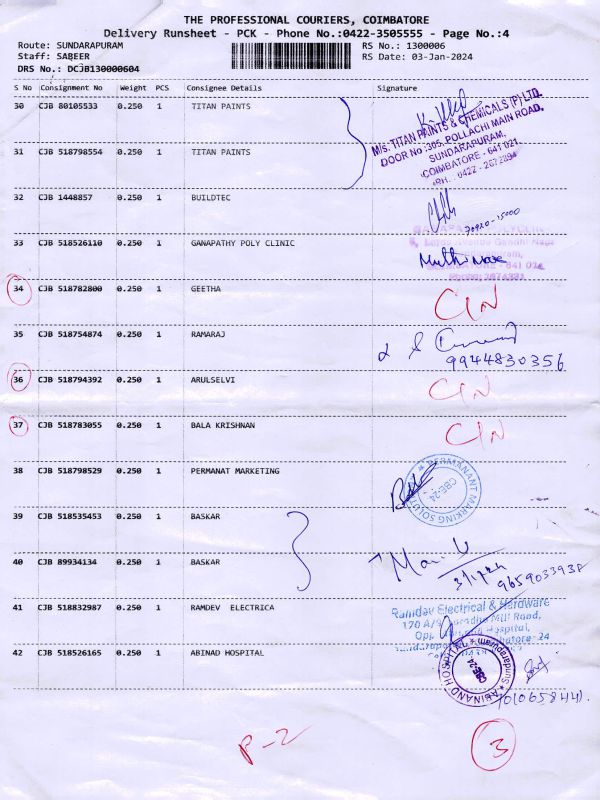 THE PROFESSIONAL COURIERS, COIMBATORE
Delivery Runsheet - PCK - Phone No.:0422-3505555 - Page No.:4
Route: SUNDARAPURAM RS No.: 1300006
Staff: SABEER RS Date: 03-Jan-2024
DRS No.: DCJB130000604
S No Consignment No Weight PCS Consignee Details Signature
30 CJB 80105533 0.250 1 TITAN PAINTS
M/s. TITAN PAINTS & CHEMICALS (P) LTD.
DOOR No :305, POLLACHI MAIN ROAD,
SUNDARAPURAM,
COIMBATORE - 641 021
PH. : 0422 - 2672894
31 CJB 518798554 0.250 1 TITAN PAINTS
32 CJB 1448857 0.250 1 BUILDTEC
70920-15000
33 CJB 518526110 0.250 1 GANAPATHY POLY CLINIC
34 CJB 518782800 0.250 1 GEETHA CIN
35 CJB 518754874 0.250 1 RAMARAJ
9944830356
36 CJB 518794392 0.250 1 ARULSELVI CIN
37 CJB 518783055 0.250 1 BALA KRISHNAN CIN
38 CJB 518798529 0.250 1 PERMANAT MARKETING
PERMANANT MARKING SOLUT
CBE-24
39 CJB 518535453 0.250 1 BASKAR
40 CJB 89934134 0.250 1 BASKAR
3/1/24 9659033938
41 CJB 518832987 0.250 1 RAMDEV ELECTRICA
Ramdav Electrical & Hardware
Mill Road,
Hospital,
42 CJB 518526165 0.250 1 ABINAD HOSPITAL
ABINAND HOSPITAL Sundarapuram
CBE-24
P-2
3